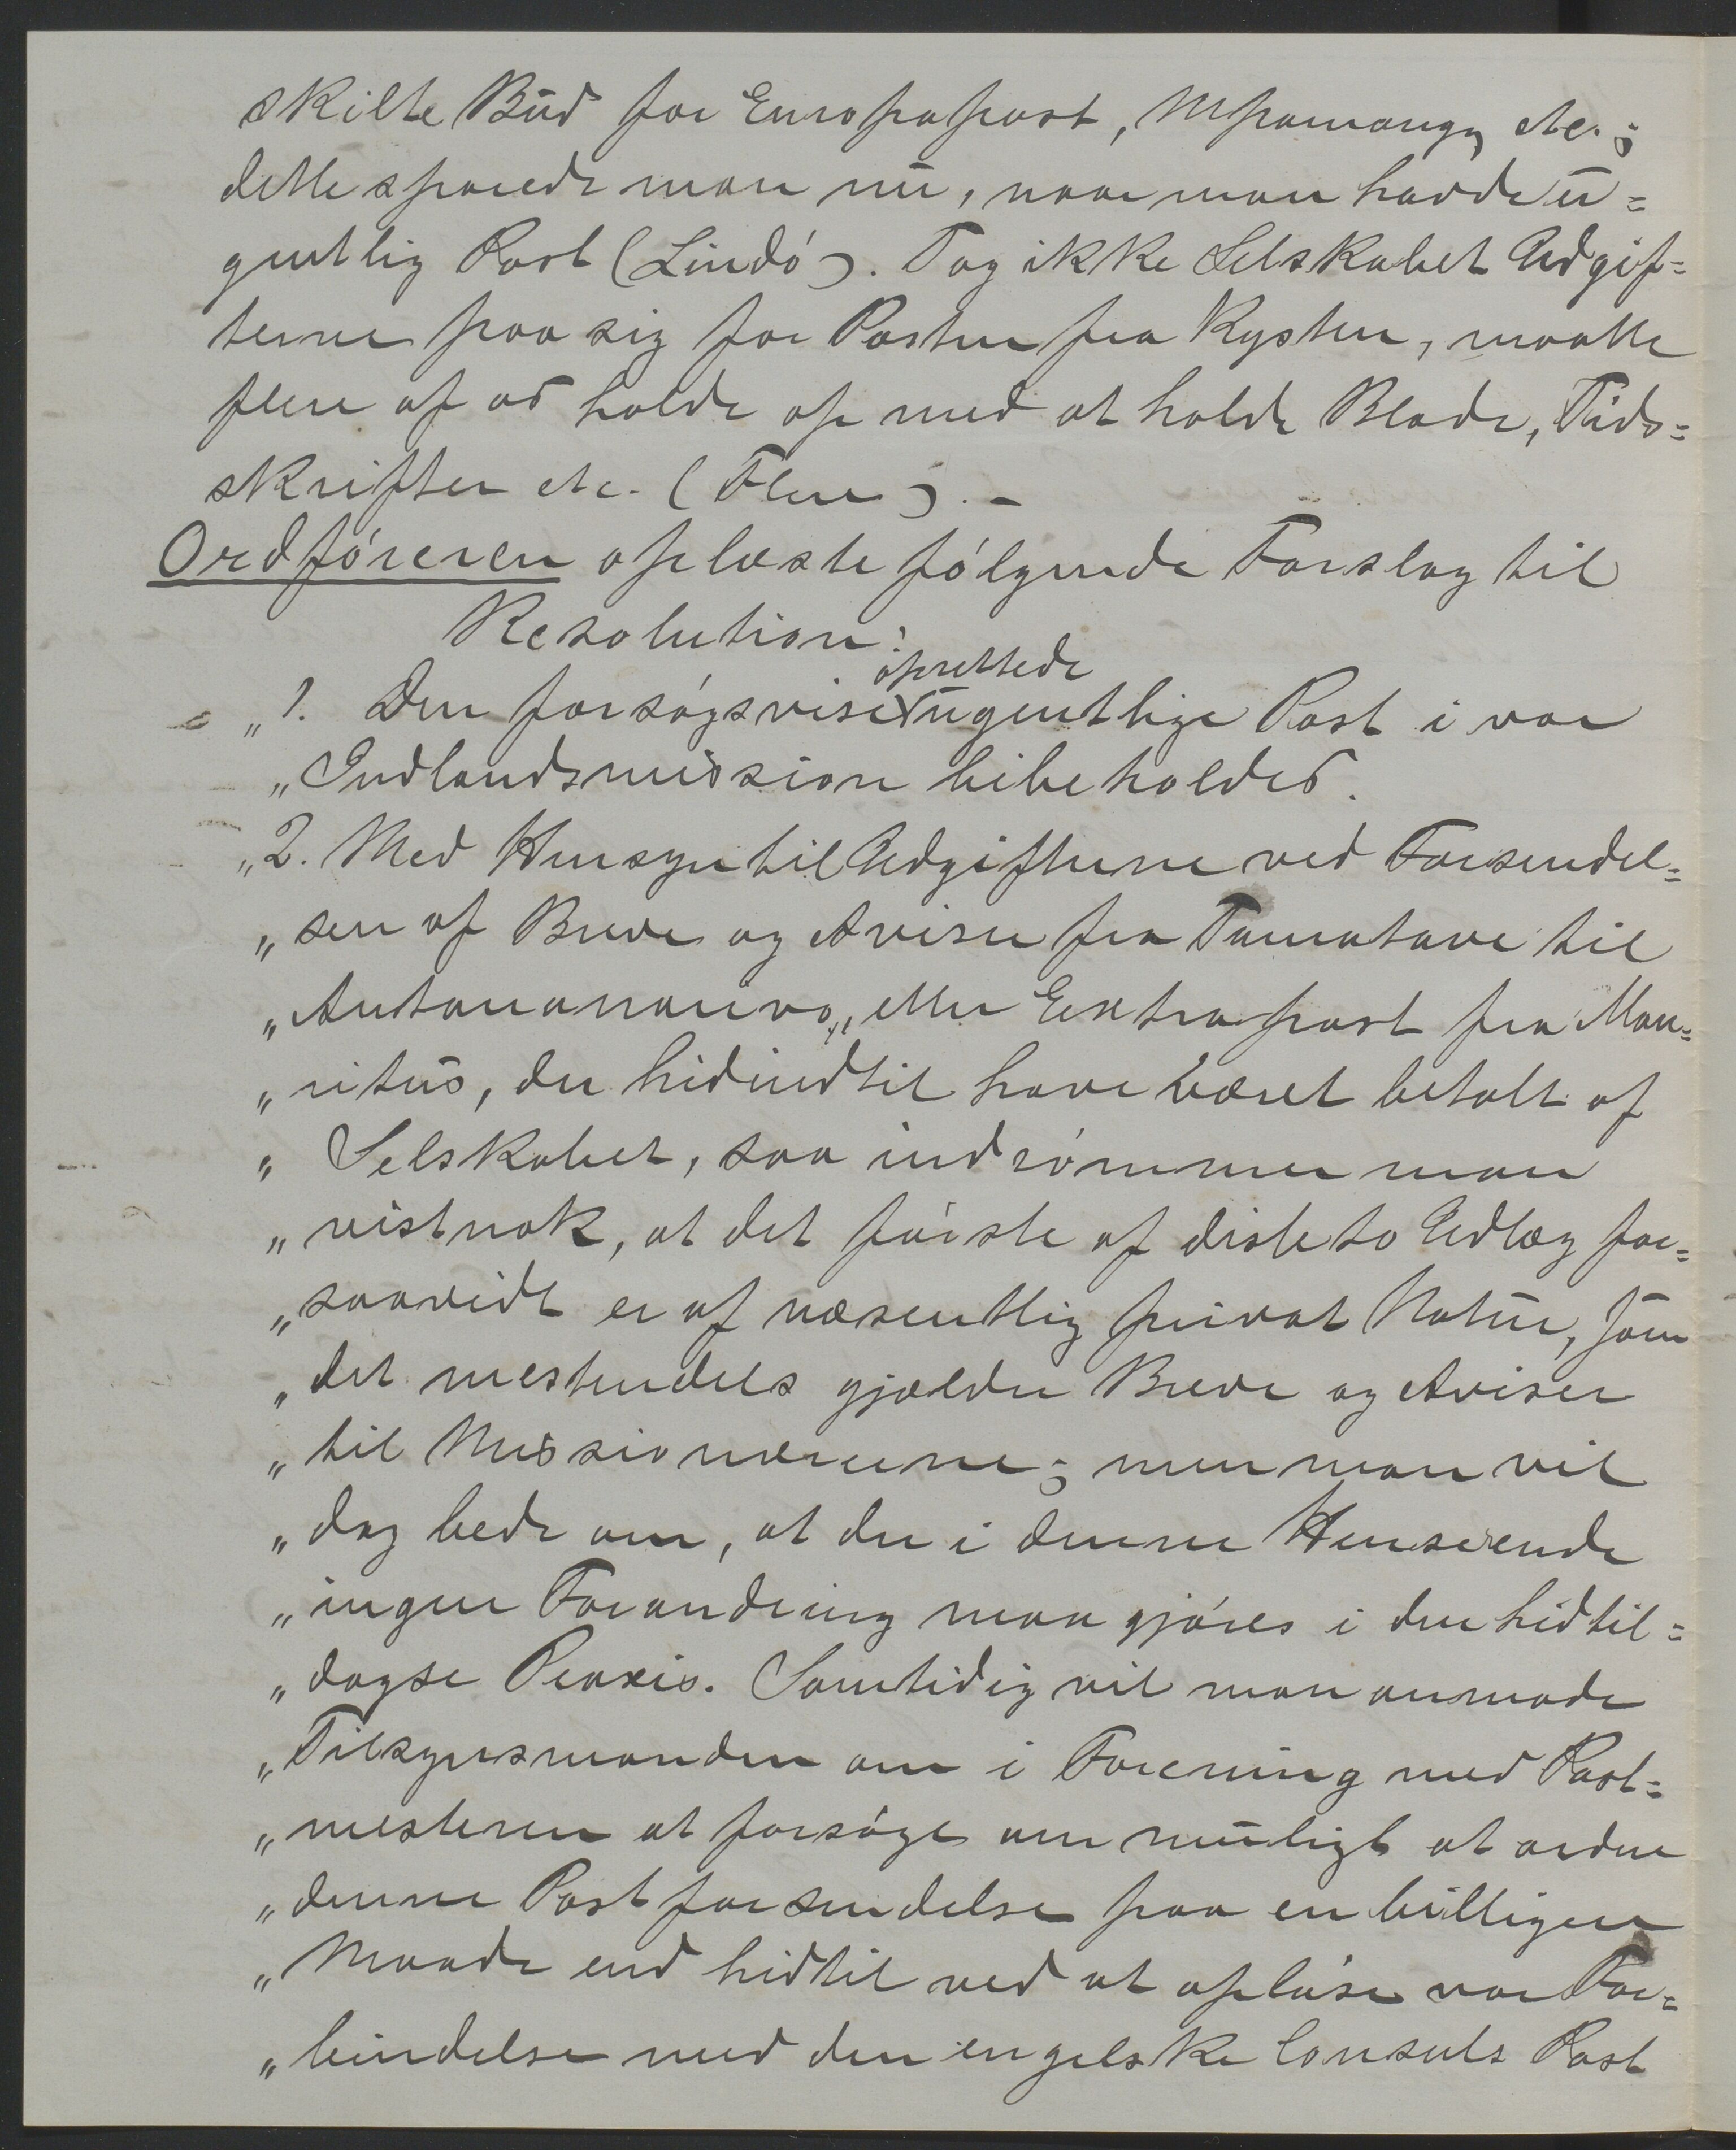 skilte Bud for Europapost, Mpamonga etc.;
dette sparede man nu, naar man havde u=
gentlig Post (Lindö). Tog ikke Selskabet Udgif=
terne paa sig for Posten fra Kysten, maatte
flere af os holde op med at holde Blade, Tids=
skrifter etc. (Flere). –
Ordföreren oplæste fölgende Forslag til
Resolution:
oprettede
„1. Den forsögsvise ugentlige Post i vor
„Indlandsmission bibeholdes.
„2. Med Hensyn til Udgifterne ved Forsendel=
„sen af Breve og Aviser fra Tamatave til
„Antananarivo„ eller Extrapost fra Mau=
„ritus, der hidindtil have været betalt af
„Selskabet, saa indrömmer man
„vistnok, at det förste af disse to Udlæg for=
„saavidt er af væsentlig privat Natur, som
„det mestendels gjælder Breve og Aviser
„til Missionærerne; men man vil
„dog bede om, at der i denne Henseende
„ingen Forandring maa gjöres i den hidtil=
„dagse Praxis. Samtidig vil man anmode
„Tilsynsmanden om i Forening med Post=
„mesteren at forsöge om muligt at ordne
„denne Postforsendelse paa en billigere
„Maade end hidtil ved at oplöse vor For=
„bindelse med den engelske Consuls Post